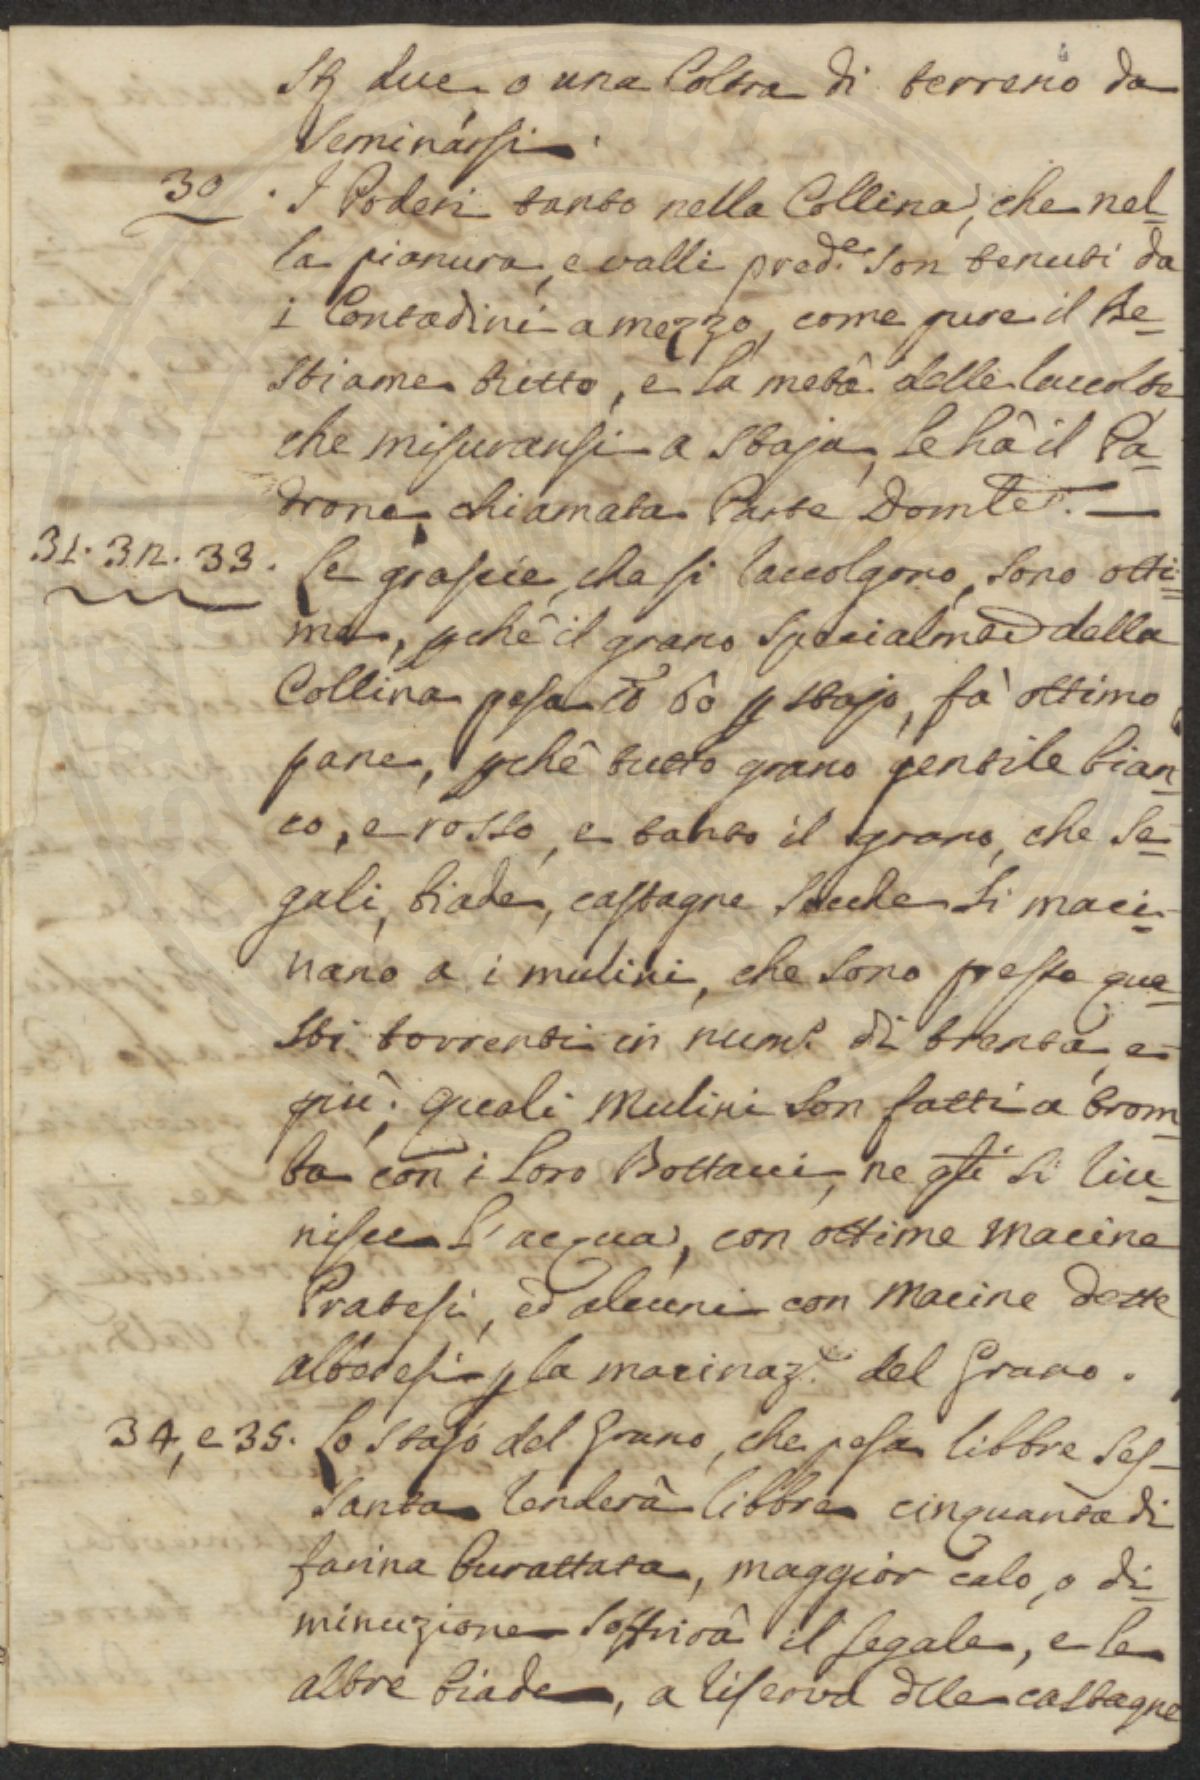 Sta due o una Coltra di terreno da
seminarsi.
30. I Poderi tanto nella Collina, che nel-
la pianura, e valli pred.e son tenuti da
i Contadini a mezzo, come pure il Be-
stiame tutto, e la metà delle raccolte
che misuransi a staja, le hà il Pa-
drone, chiamata Parte Domle. —
31. 32. 33. Le grascie, che si raccolgono, sono otti-
me, pchê il grano specialmte della
Collina pesa lb 60 p stajo, fà ottimo
pane, pchê tutto grano gentile bian-
co, e rosso, e tanto il grano, che se-
gali, biade, castagne secche si maci-
nano a i mulini, che sono presso que-
sti torrenti in num.o di trenta, e
più; quali Mulini son fatti a trom-
ba con i loro Bottacci, ne qli si riu-
nisce l'acqua, con ottime Macine
Pratesi, ed alcuni con Macine dette
alberesi p la macinaz.e del Grano.
34, e 35. Lo stajo del Grano, che pesa libbre ses-
santa renderà libbre cinquanta di
farina burattata, maggior calo, o di-
minuzione soffrirà il segale, e le
altre biade, a riserva dlle castagne